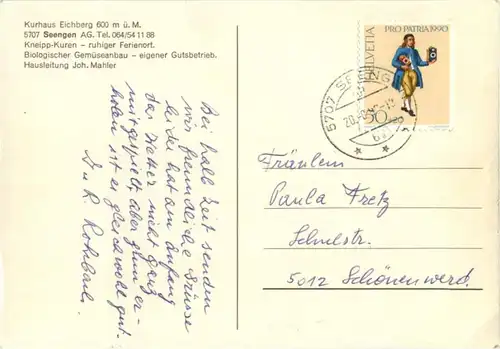 Kurhaus Eichberg 600 m ü. M.
5707 Seengen AG. Tel. 064/54 11 88
Kneipp-Kuren – ruhiger Ferienort.
Biologischer Gemüseanbau – eigener Gutsbetrieb.
Hausleitung Joh. Mahler
HELVETIA
PRO PATRIA 1990
50
5707 SEENGEN
Bei halb Zeit senden
wir freundliche Grüsse
leider hat am Anfang
das Wetter nicht ganz
mitgespielt aber zum er-
holen ist er gleichwohl gut.
D u R. Rohrbach.
Fräulein
Paula Fretz
Schulstr.
5012 Schönenwerd.